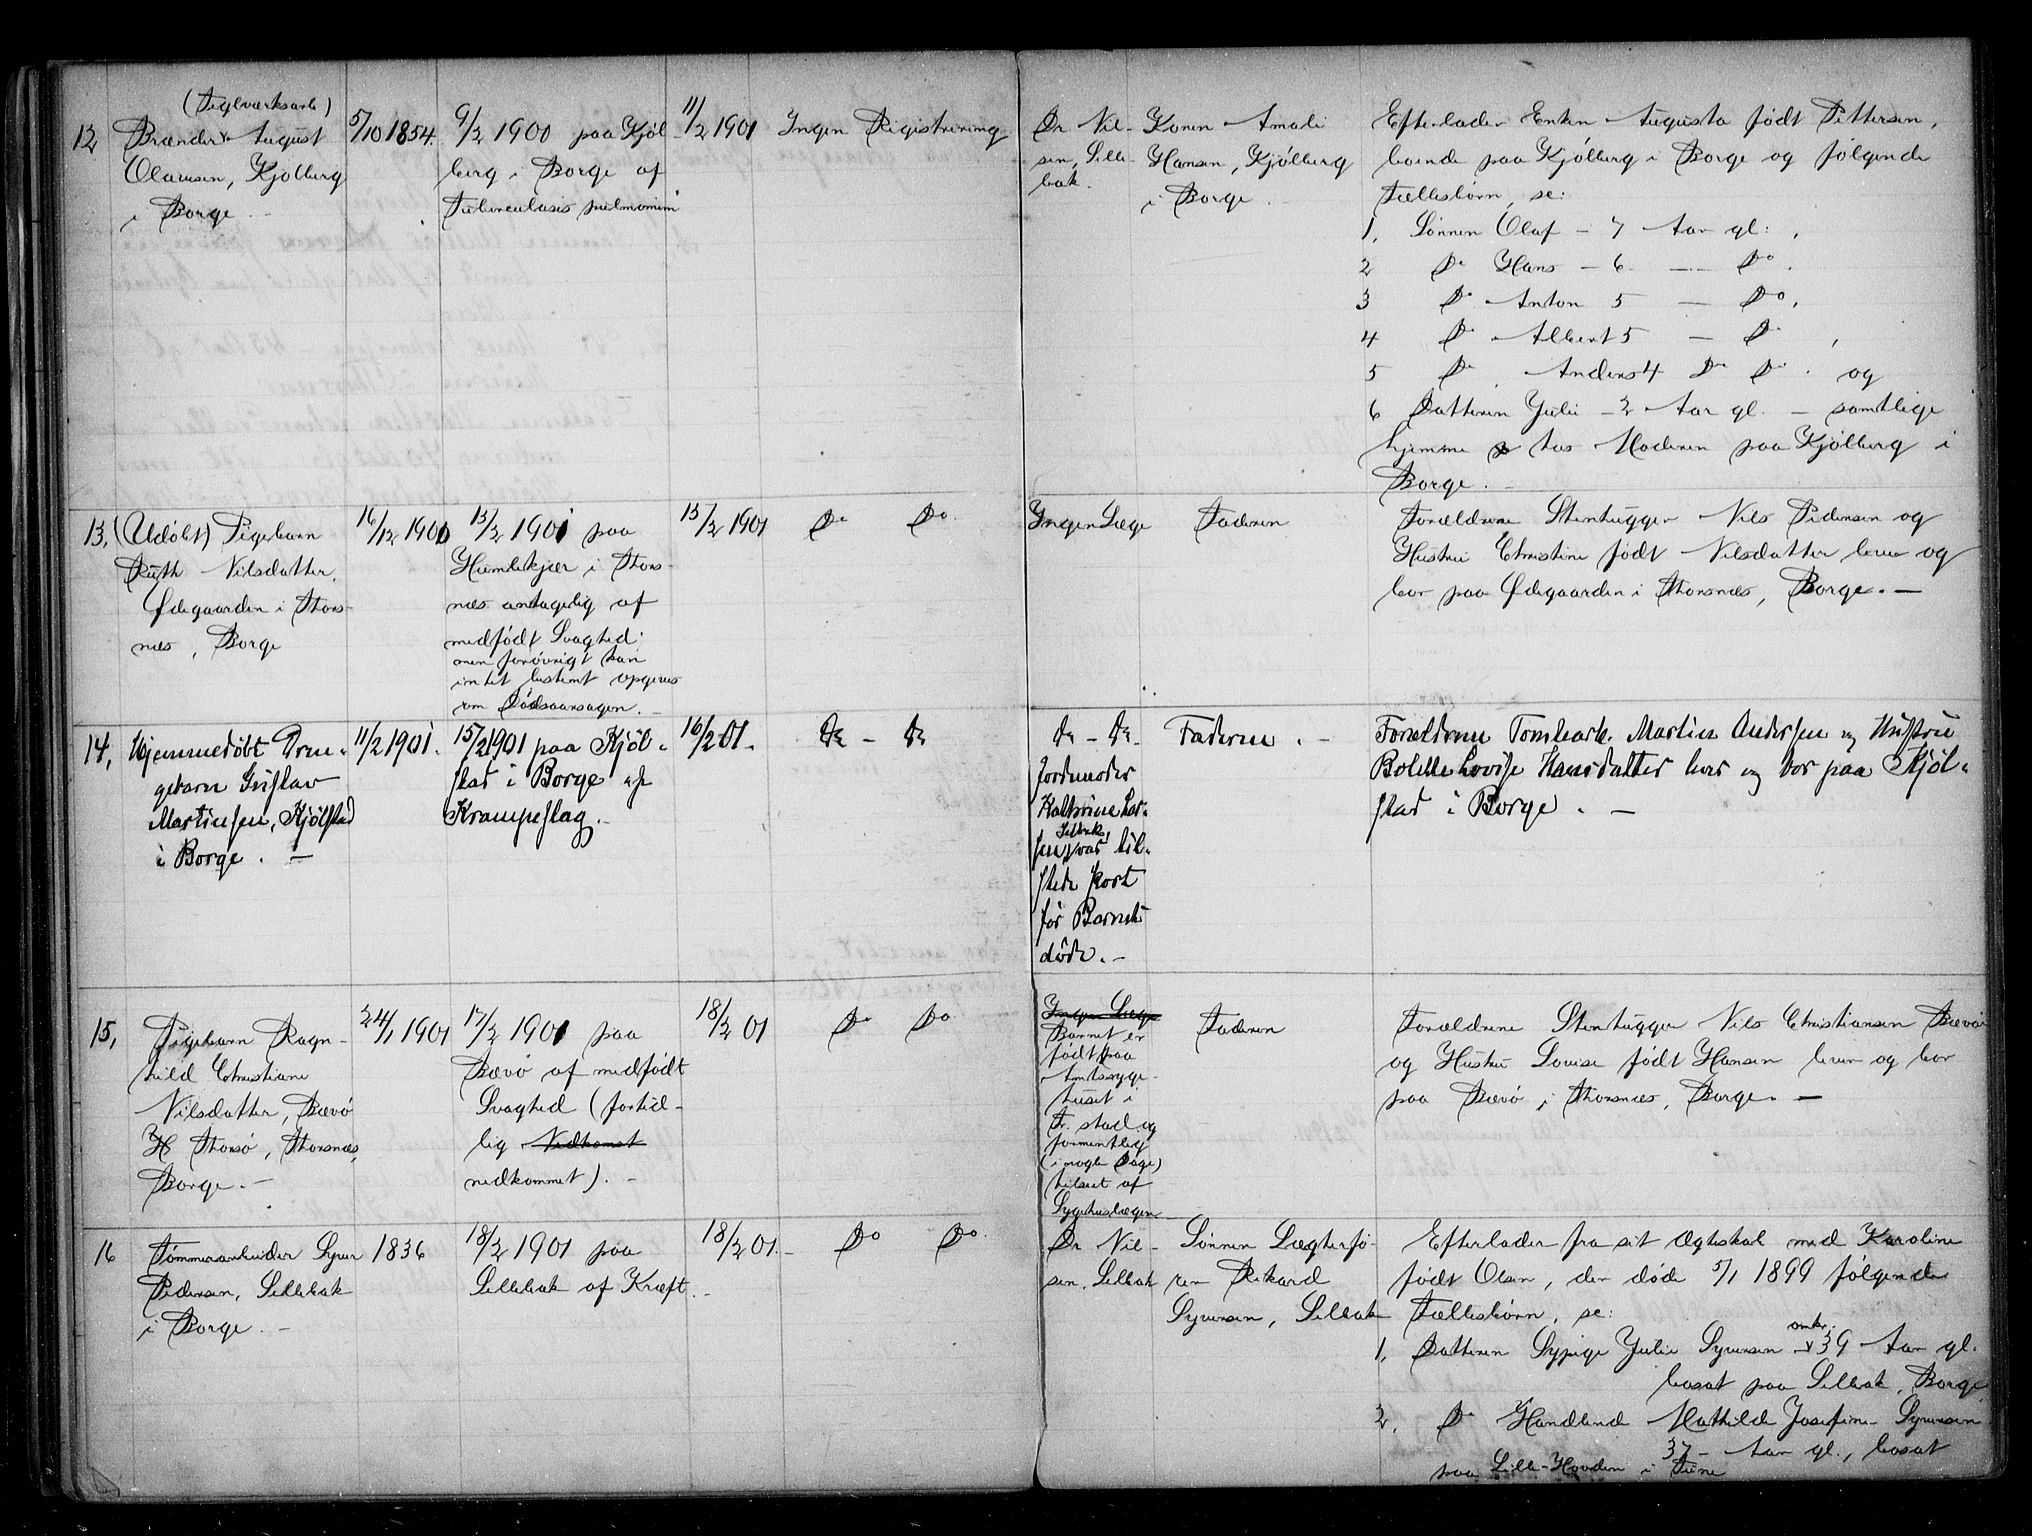 (Teglværksarb)
12 Brænder August
Olausen, Kjølberg
i Borge
5/10 1854.
9/2 1900 paa Kjøl-
berg i Borge af
Tuberculosis pulmonum
11/2 1901
Ingen Registrering
Dr Nil-
sen, Selle-
bak.
Konen Amali
Hansen, Kjølberg
i Borge
Efterlader Enken Augusta født Pettersen,
boende paa Kjølberg i Borge og følgende
Fællesbørn, se:
1, Sønnen Olaf - 7 Aar gl:
2 Do Hans - 6 — Do.
3 Do Anton 5 — Do,
4 Do Albert 5 — Do,
5 Do Anders 4 Do Do. og
6 Datteren Julie - 2 Aar gl. - samtlige
hjemme hos Moderen paa Kjølberg i
Borge. -
13, (Udøbt) Pigebarn
Ruth Nilsdatter,
Ødegaarden i Thors-
næs, Borge
16/12 1900
13/2 1901 paa
Humlekjær i Thors-
næs antagelig af
medfødt Svaghed;
men forøvrigt kan
intet bestemt opgives
om Dødsaarsagen. -
15/2 1901
Do Do.
Ingen Læge
Faderen
Forældrene Stenhugger Nils Pedersen og
Hustru Christine født Nilsdatter lever og
bor paa Ødegaarden i Thorsnæs, Borge. —
14, Hjemmedøbt Dren-
gebarn Gustav
Martinsen, Kjølstad
i Borge. —
11/2 1901.
15/2 1901 paa Kjøl-
stad i Borge af
Krampeslag. -
16/2 01.
Do - Do
Do - Do.
Jordmoder
Kathrine Lar-
Sellebak,
sen, var til-
stede kort
før Barnet
døde. -
Faderen. -
Forældrene Tomtearb. Martin Andersen og Hustru
Bolette Lovise Hansdatter lever og bor paa Kjøl-
stad i Borge. —
15, Pigebarn Ragn-
hild Christiane
Nilsdatter, Bævø
Thorsø, Thorsnæs,
Borge. -
24/1 1901
17/2 1901 paa
Bævø af medfødt
Svaghed (fortid-
lig Nedkomst
nedkommet). -
18/2 01
Do Do
Ingen Læge
Barnet er
født paa
Amtssyge-
huset i
Fr. stad og
formentlig
(i nogle Dage)
tilseet af
Sygehuslægen
Faderen
Forældrene Stenhugger Nils Christiansen Bævø
og Hustru Lovise født Hansen lever og bor
paa Bævø i Thorsnæs, Borge. —
16 Tømmerarbeider Syver
Pedersen, Sellebak
i Borge. -
1836
18/2 1901 paa
Sellebak af Kræft. -
18/2 01. -
Do Do.
Dr Nil-
sen, Sellebak
Sønnen Lægterfø-
rer Rikard
Syversen, Sellebak
Efterlader fra sit Ægteskab med Karoline
født Olsen, den døde 5/1 1899 følgende
Fællesbørn, se:
omkr.
1, Datteren Sypige Julie Syversen 39 Aar gl.
bosat paa Sellebak, Borge
2, Do Handlend. Mathilde Josefine Syversen
37 - Aar gl., bosat
paa Lille-Hovden i Tune